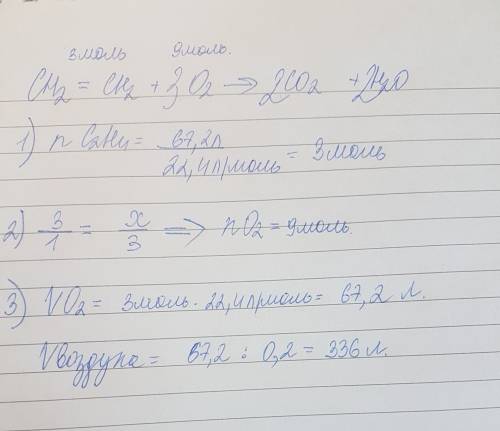 3моль 9моль.
CH2 = CH2 + 3O2 → 2CO2 + 2H2O
1) n C2H4 = 67,2л / 22,4л/моль = 3моль
2) 3/1 = x/3 ⇒ nO2 = 9моль.
3) VO2 = 3моль · 22,4л/моль = 67,2 л.
Vвоздуха = 67,2 : 0,2 = 336 л.